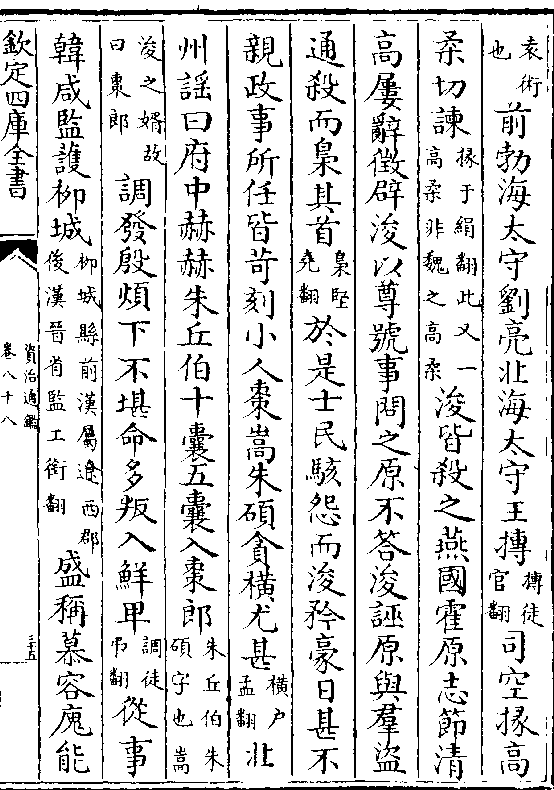 袁術也前勃海太守劉亮北海太守王摶摶徒官翻司空掾高
柔切諫掾于絹翻此又一高柔非魏之高柔浚皆殺之燕國霍原志節清
高屢辭徵辟浚以尊號事問之原不答浚誣原與羣盜
通殺而梟其首梟堅堯翻於是士民駭怨而浚矜豪日甚不
親政事所任皆苛刻小人棗嵩朱碩貪橫尤甚橫户孟翻北
州謡曰府中赫赫朱丘伯十囊五囊入棗郎朱丘伯朱碩字也嵩
浚之婿故曰棗郎調發殷煩下不堪命多叛入鮮卑調徒弔翻從事
韓咸監護柳城柳城縣前漢屬遼西郡後漢晉省監工銜翻盛稱慕容廆能
欽定四庫全書
資治通鑑
卷八十八